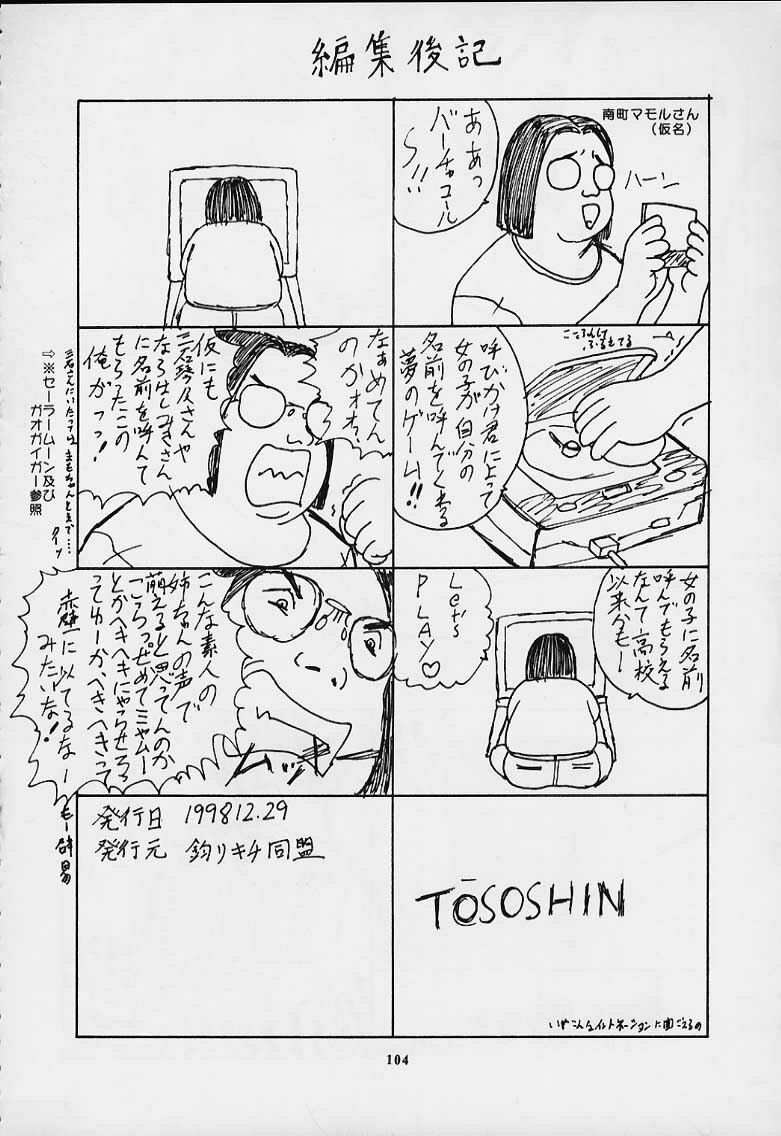 編集後記
南町マモルさん
(仮名)
ああっ
バーチャコール
S!!
ハーン
呼びかけ君によって
女の子が自分の
名前を呼んでくれる
夢のゲーム!!
女の子に名前
呼んでもらえる
なんて高校
以来かも一
Let's
PLAY♡
TŌSOSHIN
いやこんなイントネーションに聞こえるの
なぁめてん
のかォォ、
仮にも
三石琴乃さんや
ならはしみきさん
に名前を呼んで
もらったこの
俺がっっ!
⇨※セーラームーン及び
ガオガイガー参照
こんな素人の
姉ちゃんの声で
萌えると思ってんのか
こらっぜめてミャムー
とかへきへきにやらせろ
ってゆーか、へきへきって
赤壁に似てるなー
みたいな!
ムッキ
発行日 1998 12.29
発行元 釣りキチ同盟
104